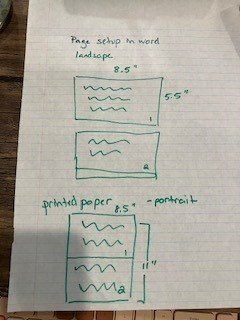 Page setup in word
landscape
8.5"
5.5"
1
2
printed paper 8.5" - portrait
1
11"
2